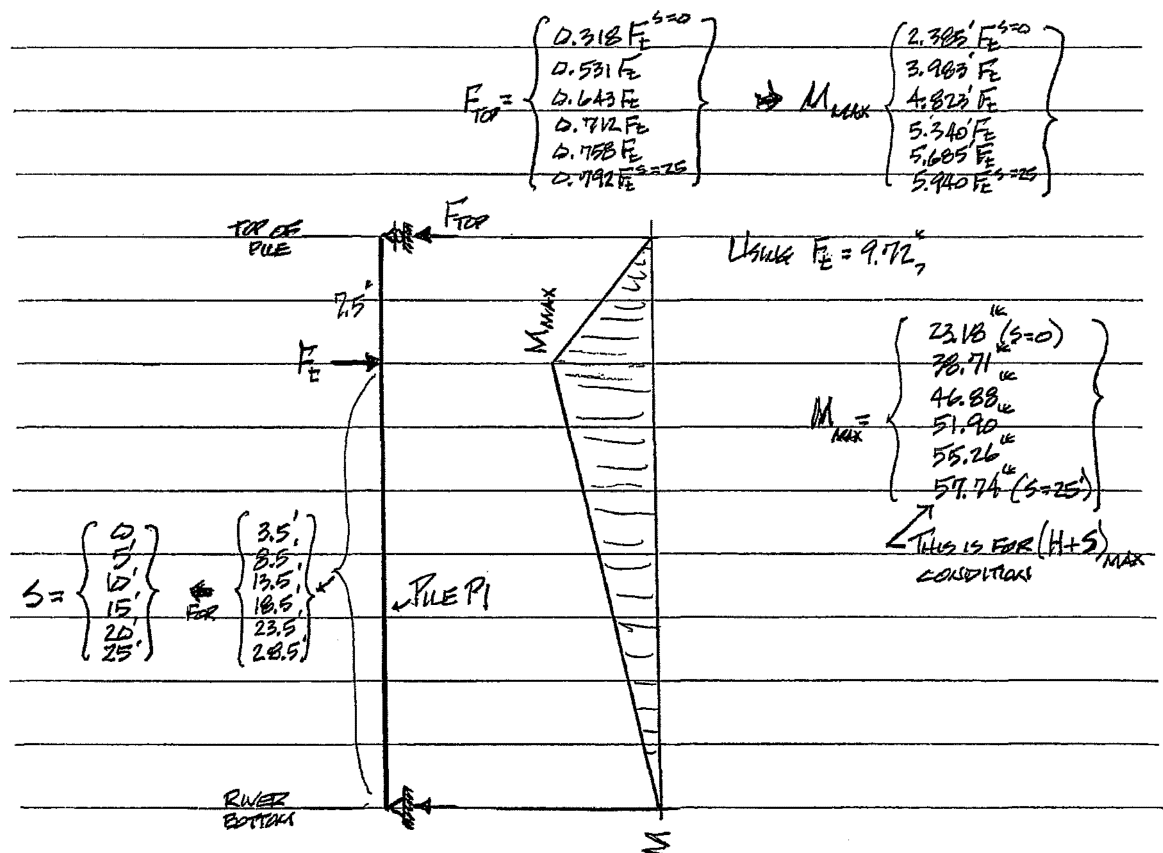 F_TOP = { 0.318 F_t^{S=0}
0.531 F_t
0.643 F_t
0.712 F_t
0.758 F_t
0.792 F_t^{S=25} }
⇒ M_MAX { 2.385' F_t^{S=0}
3.983' F_t
4.823' F_t
5.340' F_t
5.685' F_t
5.940' F_t^{S=25} }
TOP OF
PILE
F_TOP
USING F_t = 9.72^k,
7.5'
M_MAX
F_t
M_MAX = { 23.18^{'k} (S=0)
38.71^{'k}
46.88^{'k}
51.90^{'k}
55.26^{'k}
57.74^{'k} (S=25') }
THIS IS FOR (H+S)_MAX
CONDITION
S = { 0
5'
10'
15'
20'
25' }
⇐ FOR
{ 3.5'
8.5'
13.5'
18.5'
23.5'
28.5' }
PILE P1
RIVER
BOTTOM
M